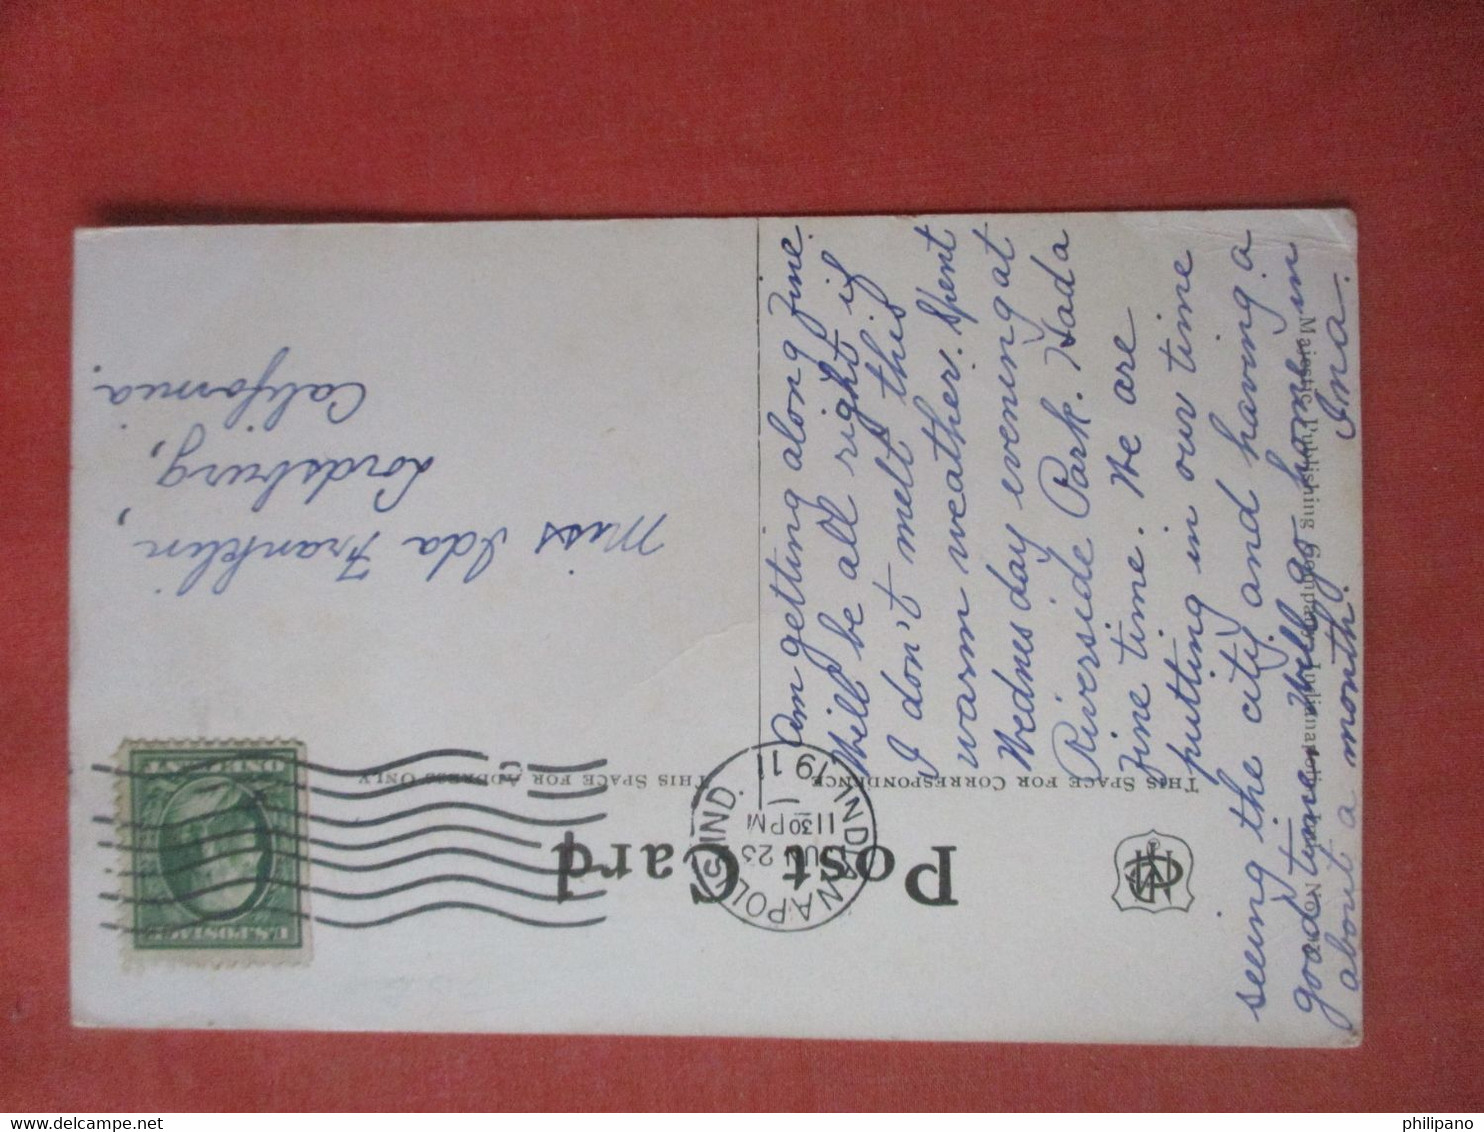 Post Card
THIS SPACE FOR CORRESPONDENCE
THIS SPACE FOR ADDRESS ONLY
INDIANAPOLIS, IND.
JUN 23
11 30 PM
1911
U.S. POSTAGE
ONE CENT
Miss Ida Franklin,
Lordsburg,
California.
Am getting along fine.
Will be all right if
I don't melt this
warm weather. Spent
Wednesday evening at
Riverside Park. Had a
fine time. We are
putting in our time
seeing the city and having a
good time. Will go home in
about a month.
Ina.
Majestic Publishing Company, Indianapolis, Ind.
philipano